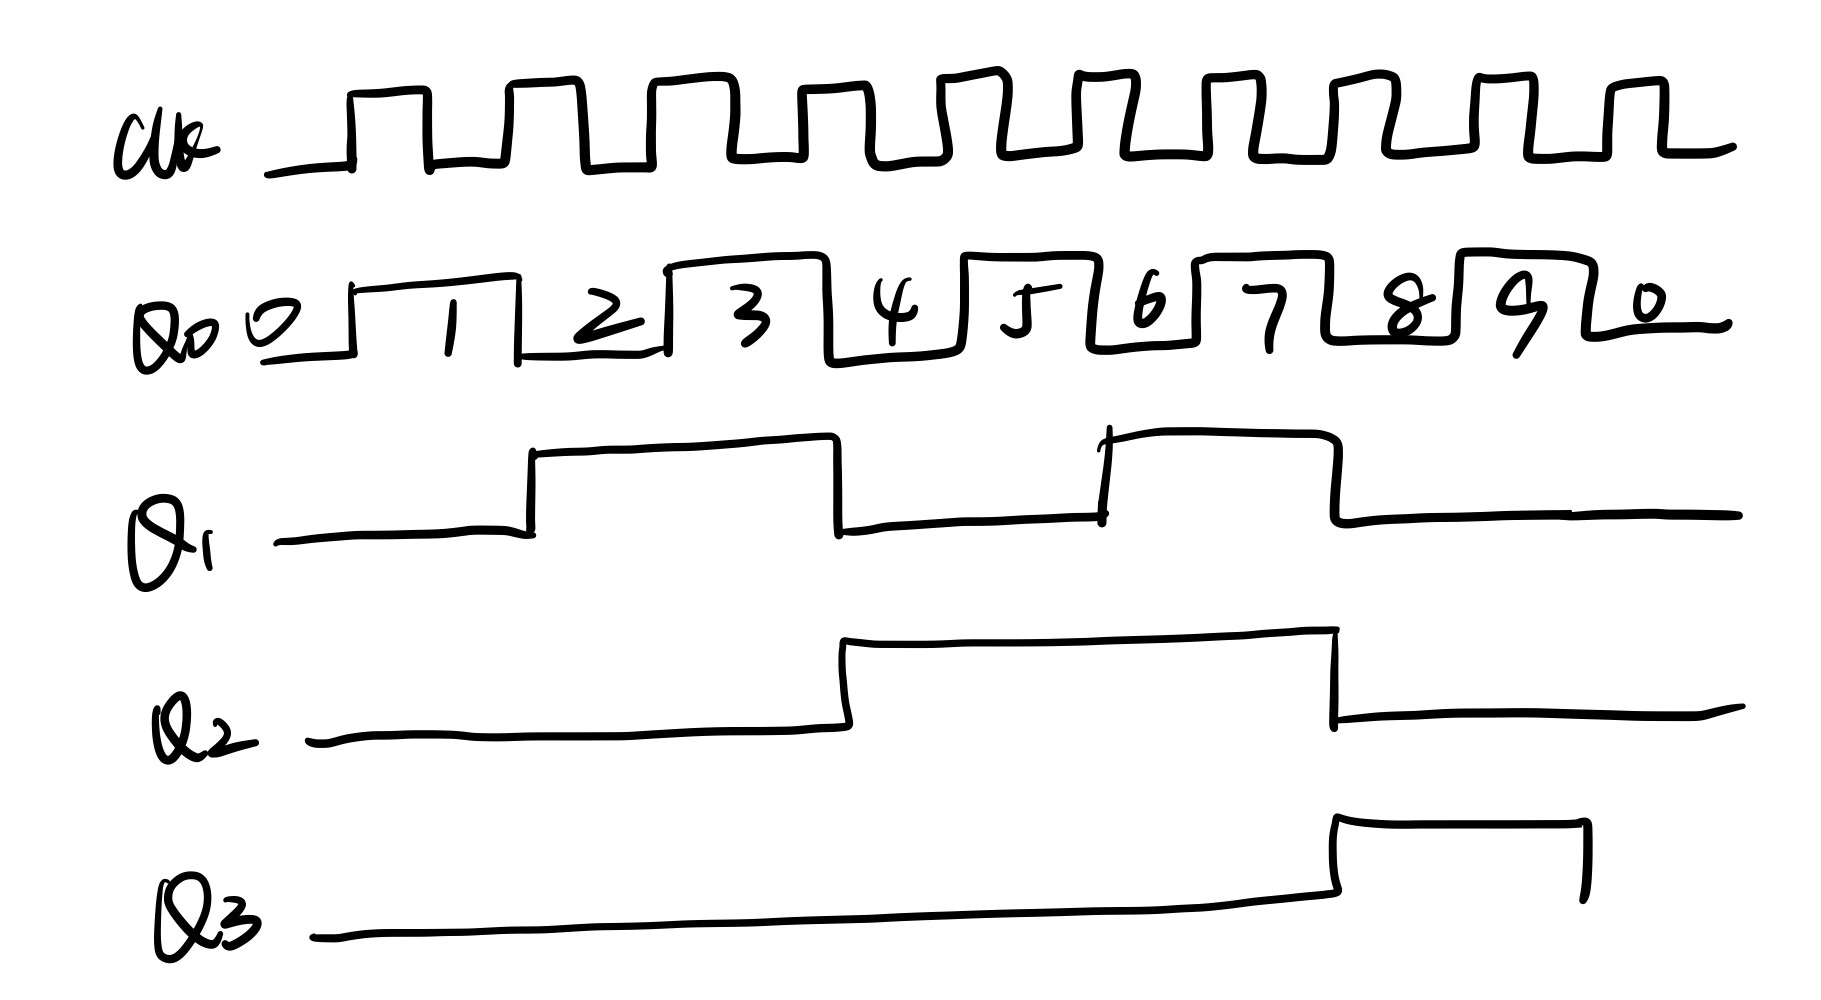 Clk
Q0 0 1 2 3 4 5 6 7 8 9 0
Q1
Q2
Q3